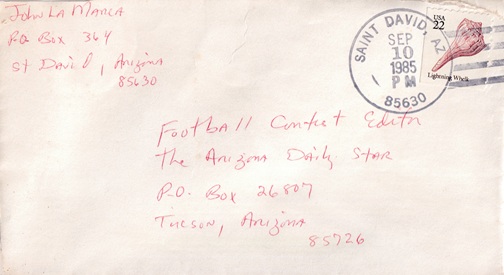 John La Marca
PO Box 364
St David, Arizona
85630
SAINT DAVID, AZ
SEP
10
1985
PM
85630
USA
22
Lightning Whelk
Football Contest Editor
The Arizona Daily Star
P.O. Box 26807
Tucson, Arizona
85726